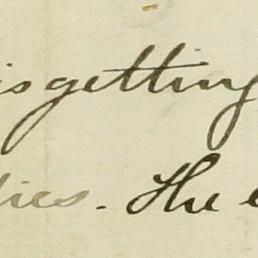 is getting
lies. The